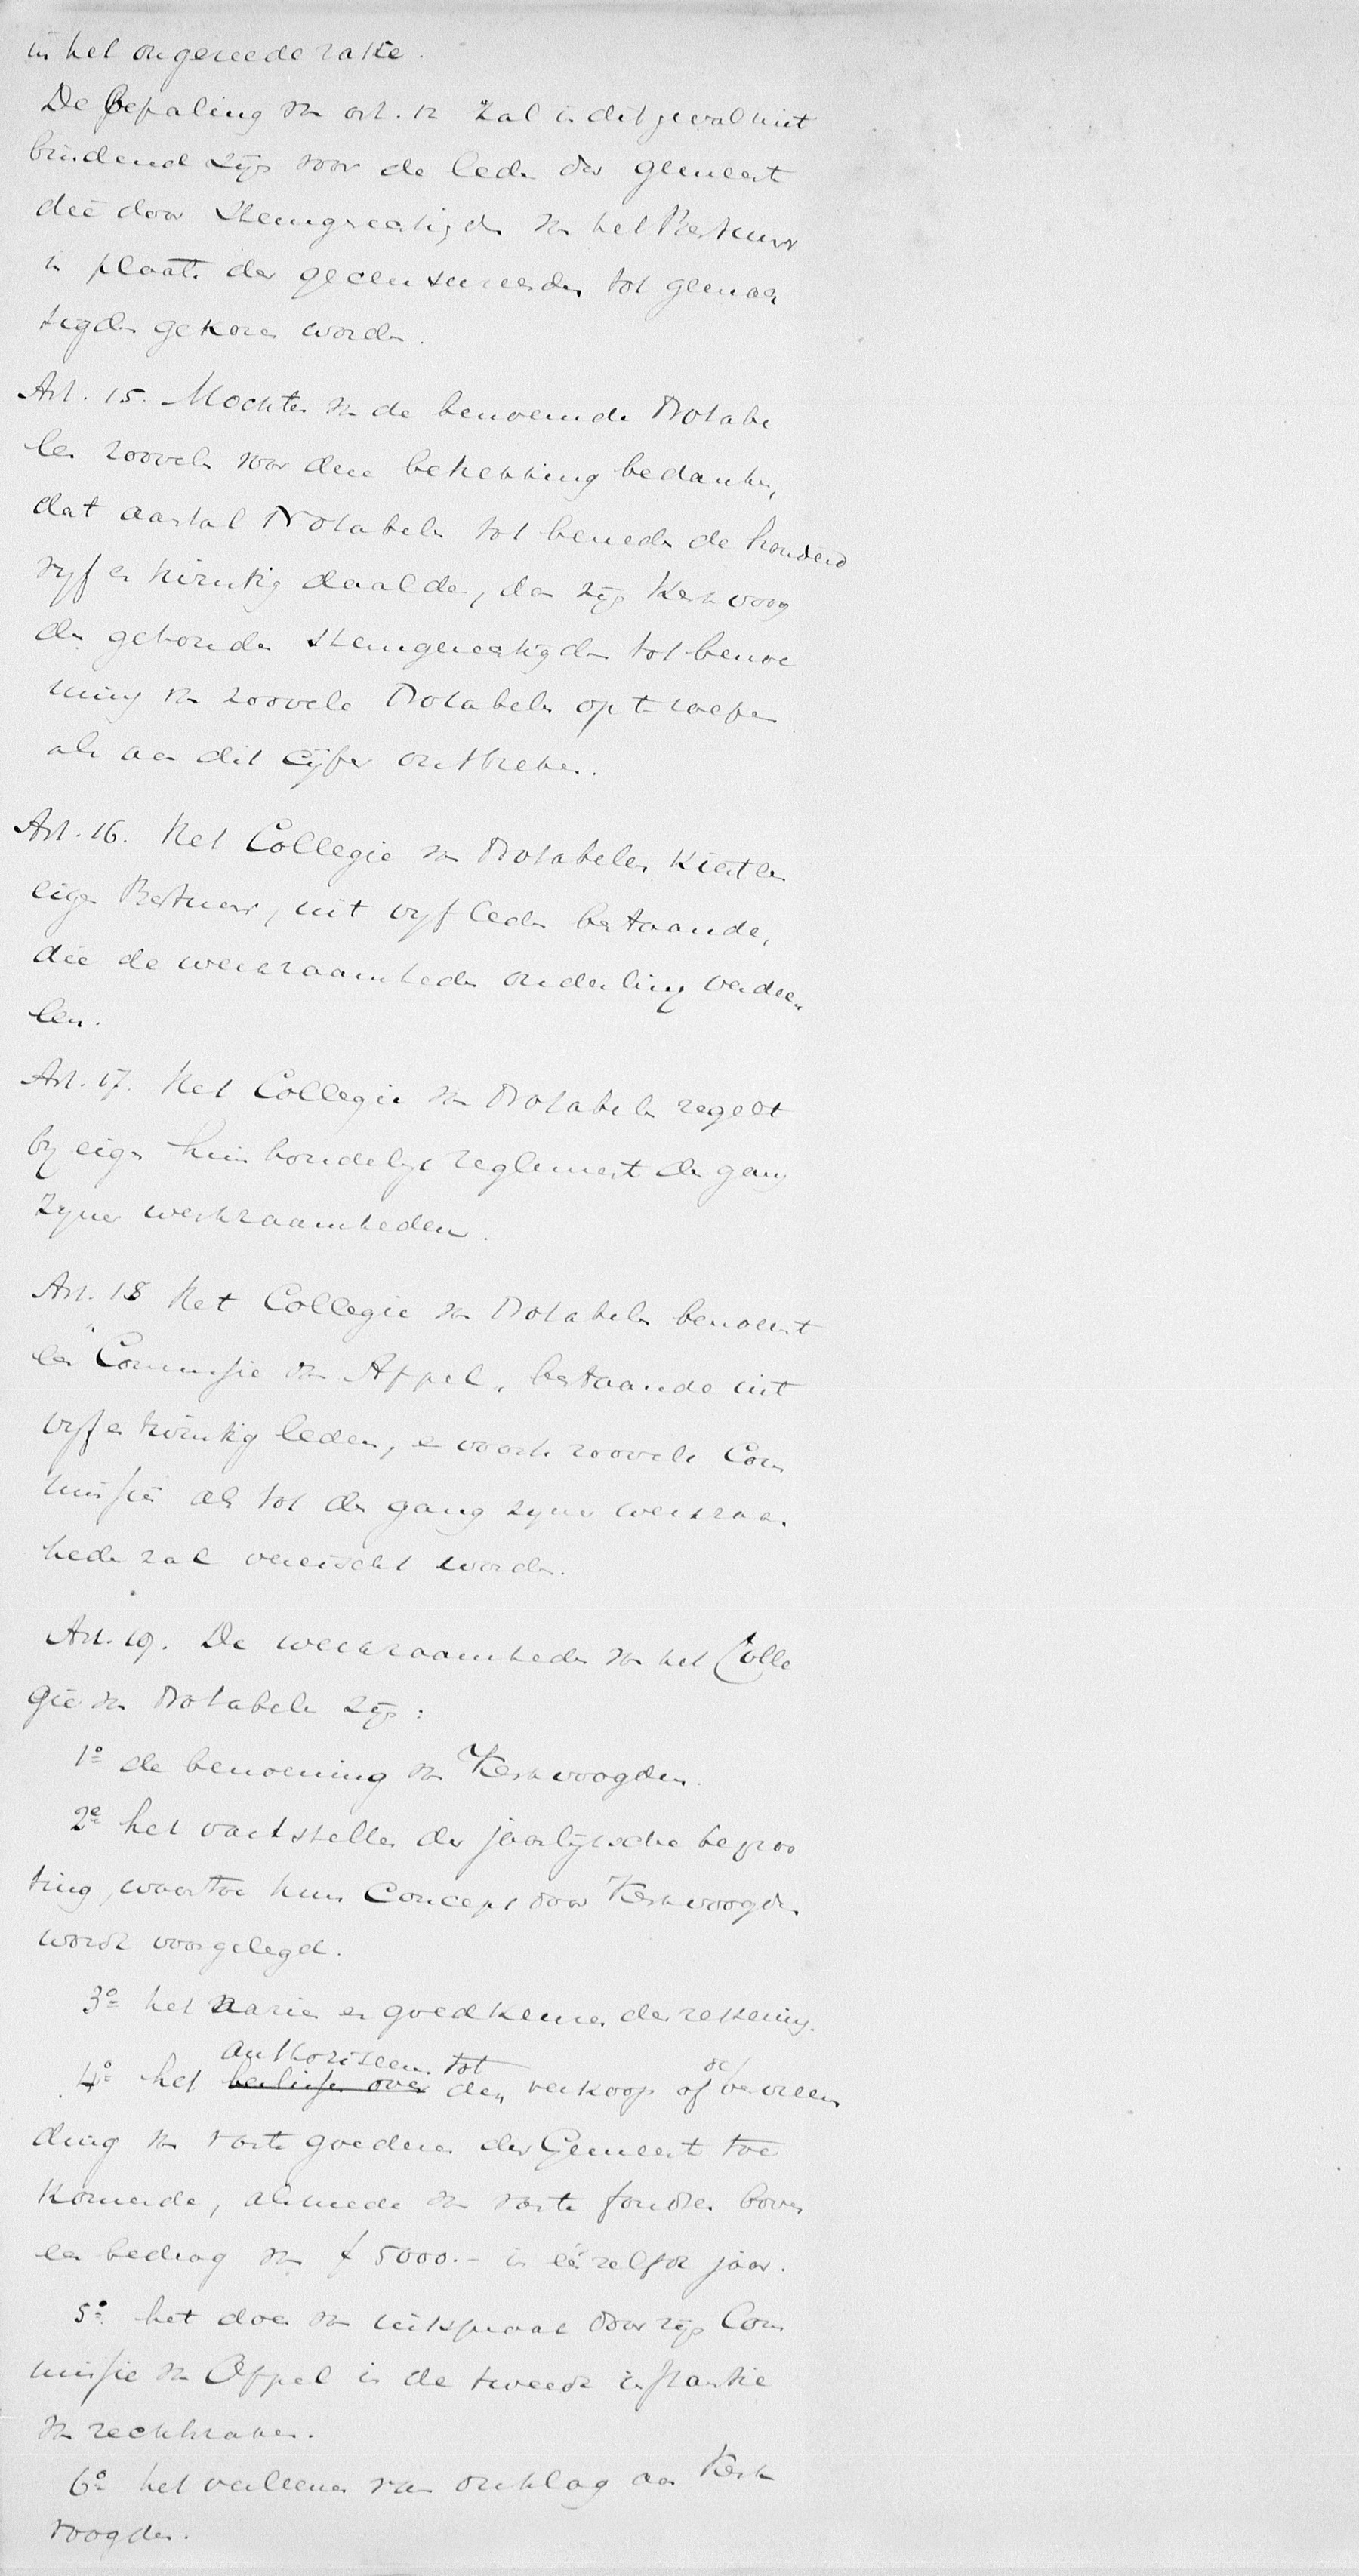 in het ongereede rake.
De bepaling van art. 12 zal in dit geval niet
bindend zijn voor de leden der gemeente
die door stemgerechtigden van het Bestuur
in plaats der gecensureerden tot gemach
tigden gekozen worden.
Art. 15. Mochten van de benoemde Notabe
len zooveelen voor deze betrekking bedanken,
dat aantal Notabelen tot beneden de honderd
vijf en twintig daalde, dan zijn Kerkvoog
den gehouden stemgerechtigden tot benoe
ming van zoovele Notabelen op te roepen
als aan dit cijfer ontbreken.
Art. 16. Het Collegie van Notabelen kiest een
eigen Bestuur, uit vijf leden bestaande,
die de werkzaamheden onderling verdee
len.
Art. 17. Het Collegie van Notabelen regelt
bij eigen huishoudelijk reglement den gang
zijner werkzaamheden.
Art. 18 Het Collegie van Notabelen benoemt
een "Commissie van Appel", bestaande uit
vijf en twintig leden, en voorts zoovele Com
missiën als tot den gang zijner werkzaam
heden zal vereischt worden.
Art. 19. De werkzaamheden van het Colle
gie van Notabelen zijn:
1o de benoeming van Kerkvoogden.
2e het vaststellen der jaarlijksche begroo
ting, waartoe hun Concept door Kerkvoogden
wordt voorgelegd.
3o het nazien en goedkeuren der rekening.
authoriseeren tot de
4o het beslissen over den verkoop of vervreem
ding van vaste goederen der Gemeente toe
komende, alsmede van vaste fondsen boven
een bedrag van f 5000.- in éénzelfde jaar.
5o het doen van uitspraak door zijn Com
missie van Appel in de tweede instantie
van rechtspraak.
6o het verleenen van ontslag aan Kerk
voogden.